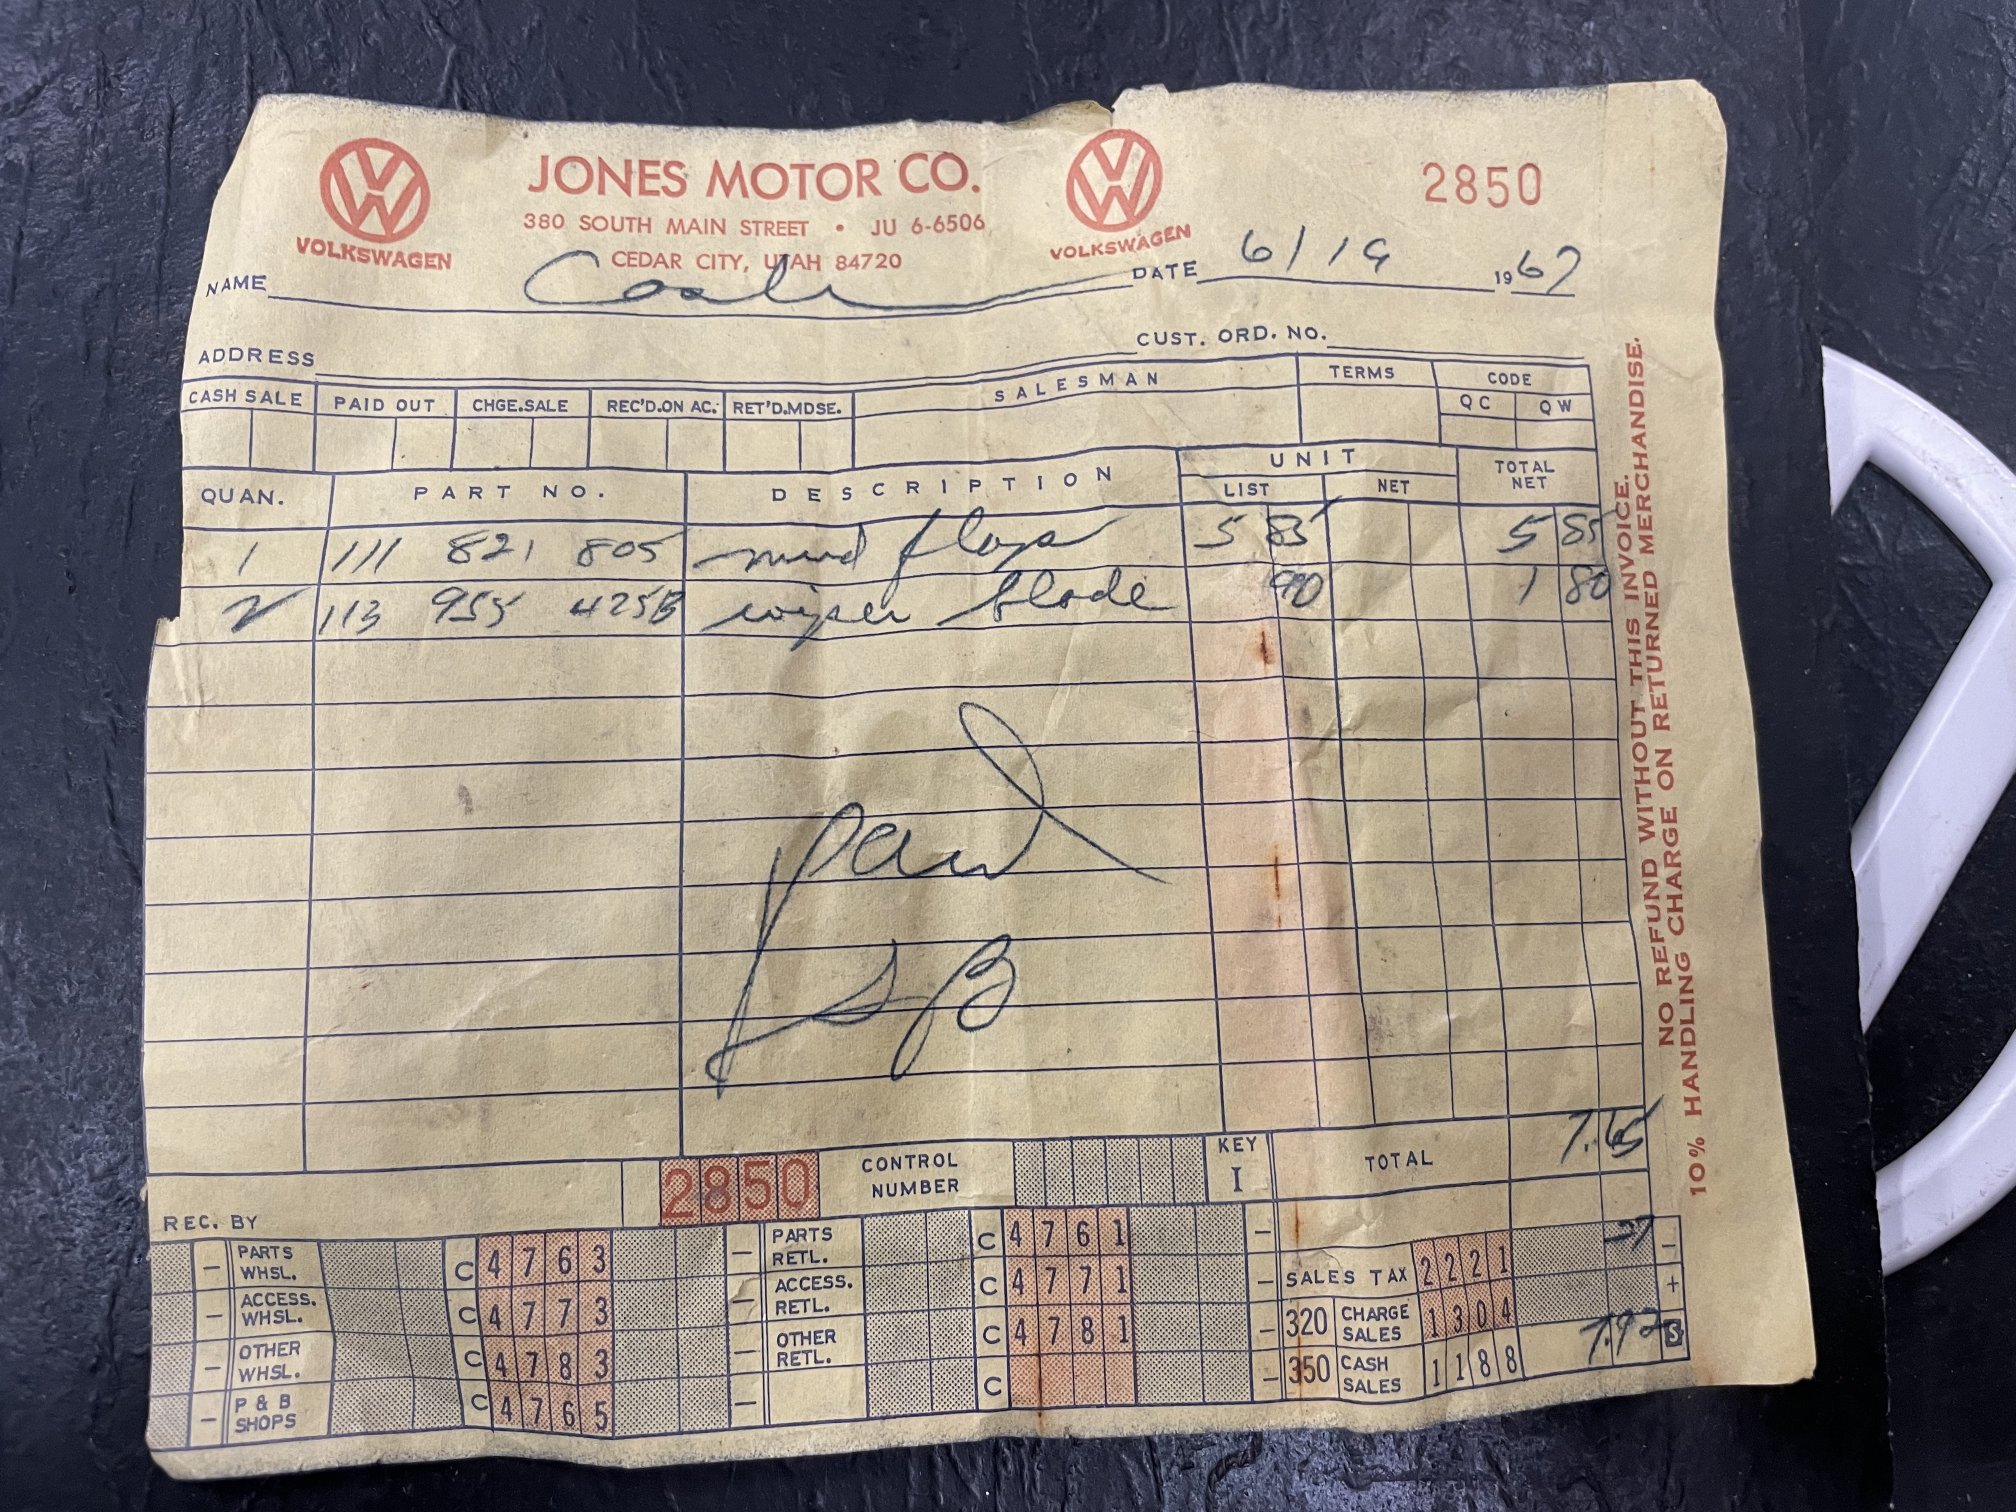 JONES MOTOR CO.
380 SOUTH MAIN STREET • JU 6-6506
CEDAR CITY, UTAH 84720
VOLKSWAGEN
VOLKSWAGEN
2850
NAME Cash
DATE 6/19 1967
ADDRESS
CUST. ORD. NO.
CASH SALE PAID OUT CHGE.SALE REC'D.ON AC. RET'D.MDSE. SALESMAN TERMS CODE
QC QW
QUAN. PART NO. DESCRIPTION UNIT TOTAL NET
LIST NET
1 111 821 805 mud flaps 5 85 5 85
2 113 955 425B wiper blade 90 1 80
paid
CONTROL NUMBER
2850
KEY I
TOTAL 7.65
REC. BY
27
– PARTS WHSL. C 4763 – PARTS RETL. C 4761 – –
– ACCESS. WHSL. C 4773 – ACCESS. RETL. C 4771 – SALES TAX 2221 +
– OTHER WHSL. C 4783 – OTHER RETL. C 4781 – 320 CHARGE SALES 1304 7.92 S
– P & B SHOPS C 4765 – C – 350 CASH SALES 1188
NO REFUND WITHOUT THIS INVOICE.
10% HANDLING CHARGE ON RETURNED MERCHANDISE.